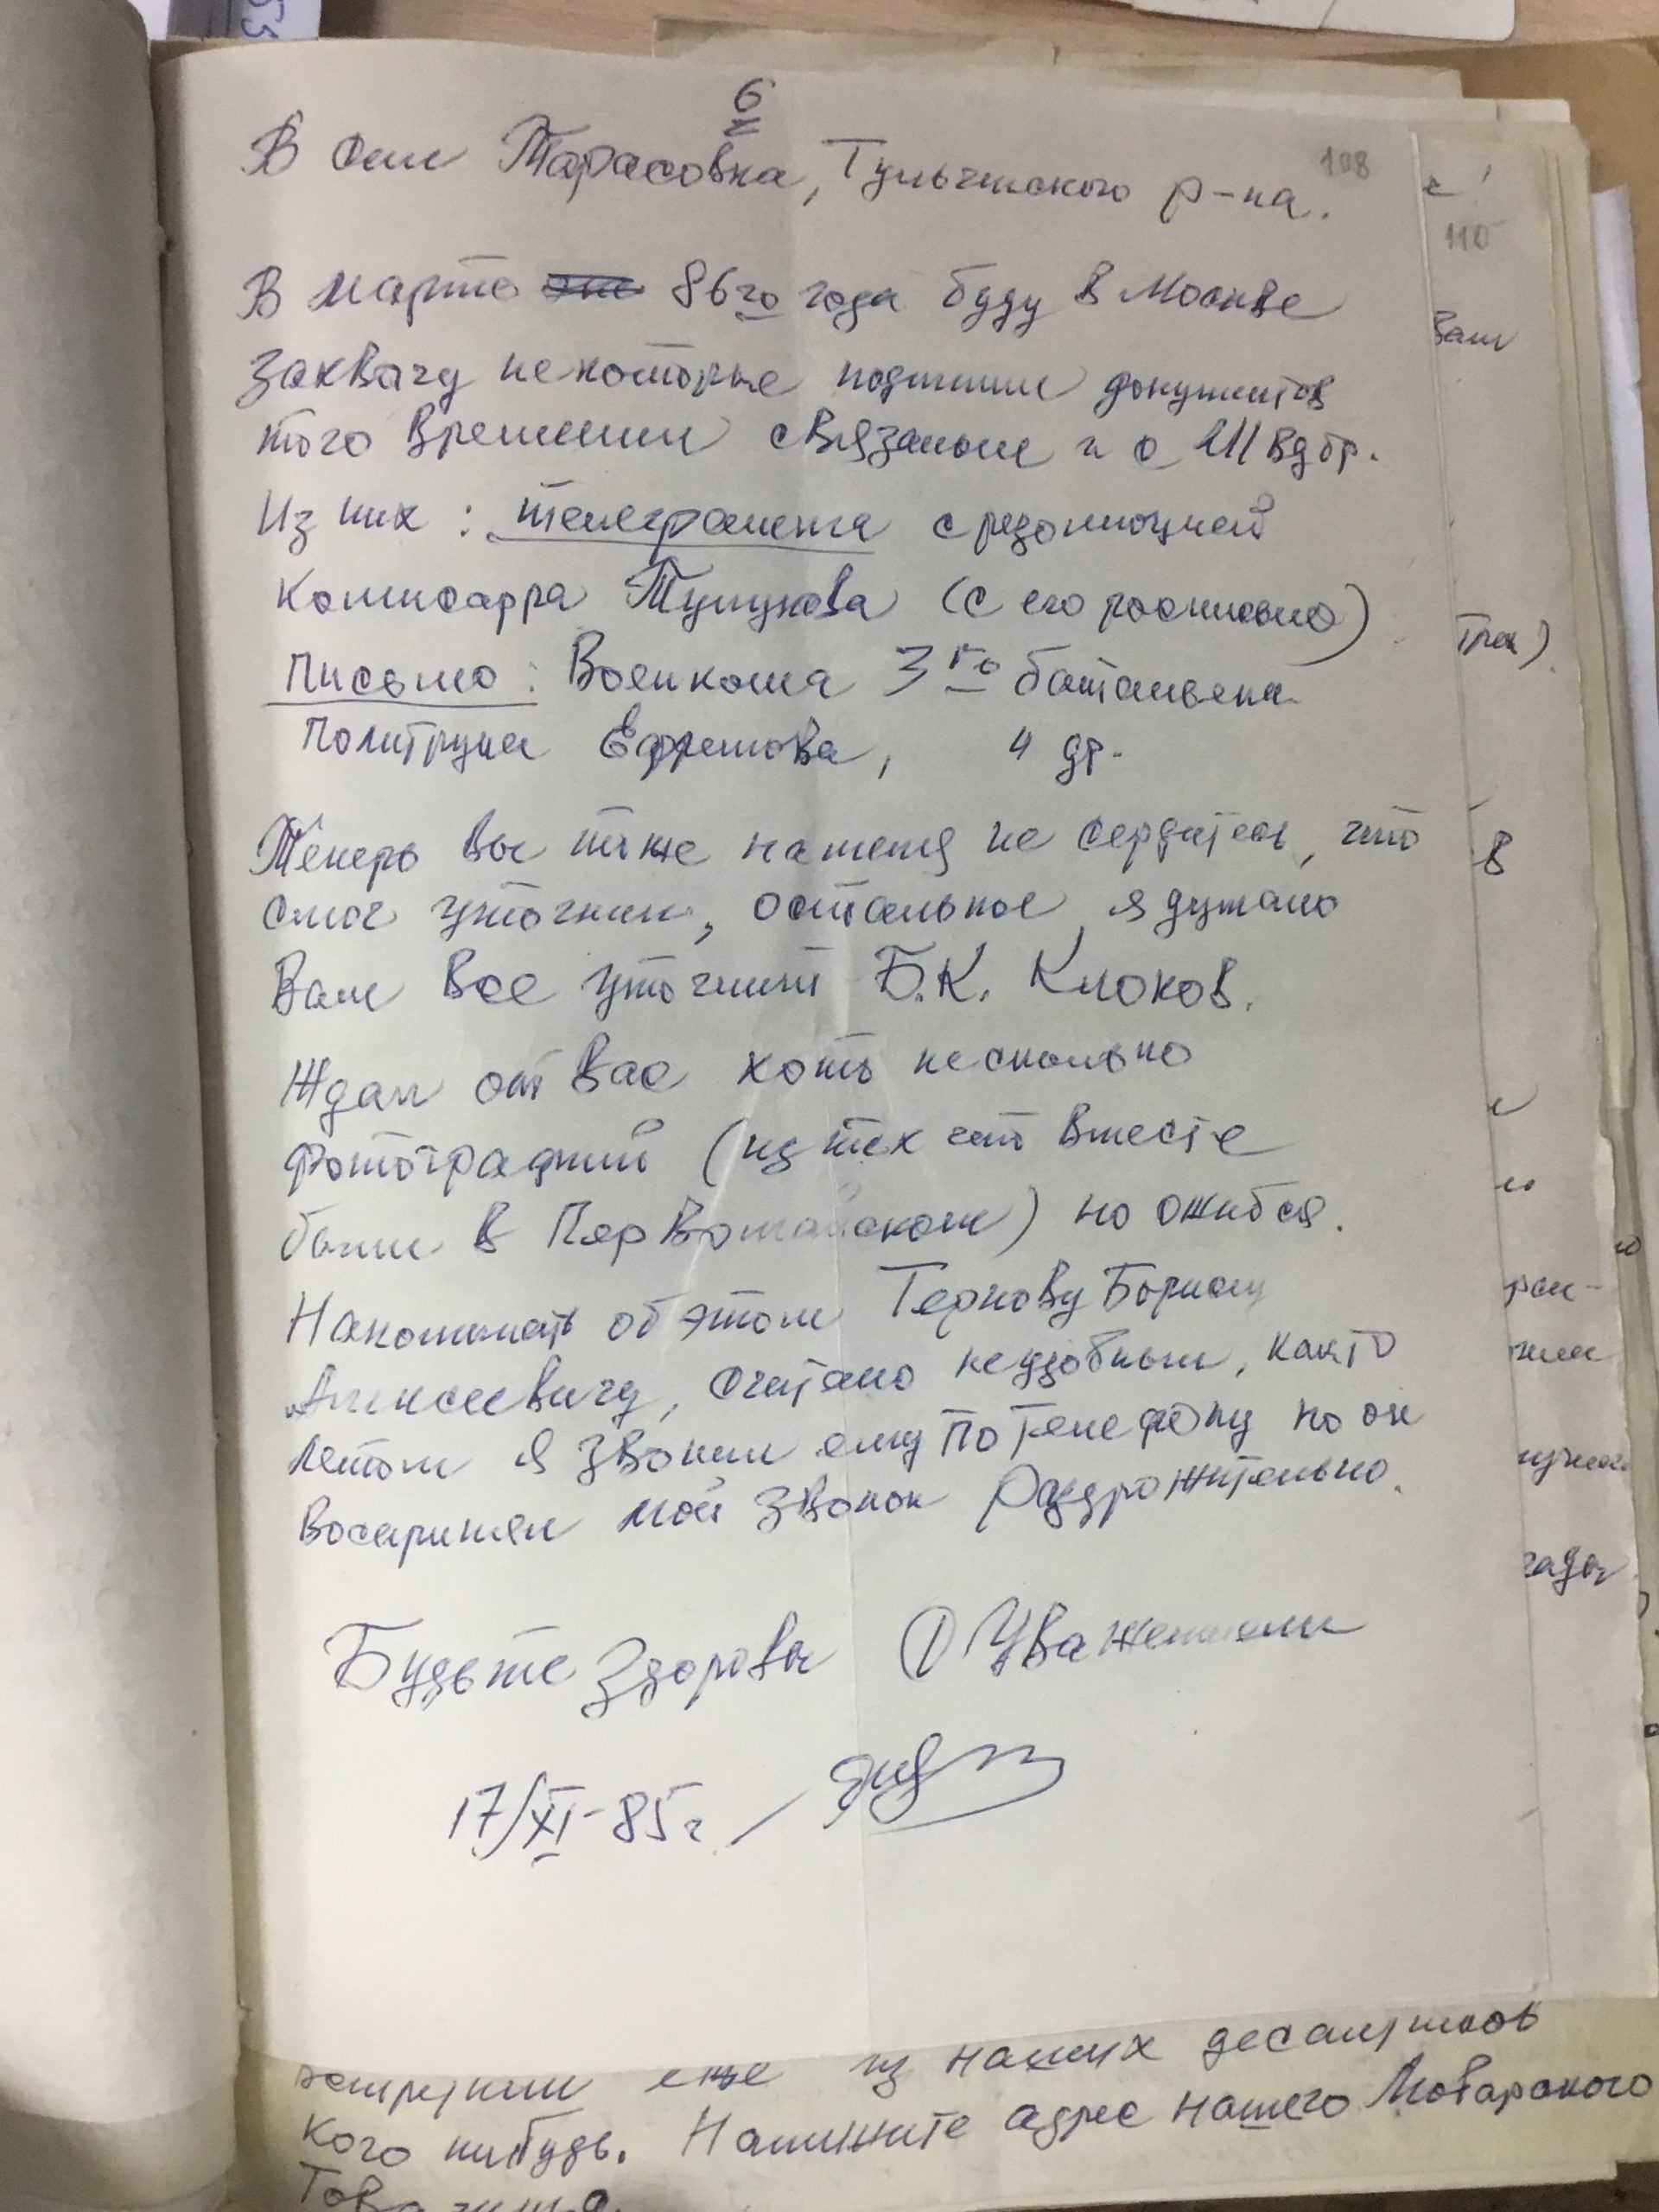 6
108
В селе Тарасовка, Тульчинского р-на.
В марте 86го года буду в Москве
захвачу некоторые подшивки документов
того времени связаные и с III вдбр.
Из них: телеграмма с резолюцией
Комисарра (с его росписью)
Письмо: Военкома 3го баталиена
Политрука Ефремова, и др.
Теперь вы тоже на меня не сердитесь, что
смог уточнил, остальное я думаю
Вам все уточнит Б.К. Клоков.
Ждал от Вас хоть несколько
фотографий (из тех что вместе
были в Первомайском) но ошибся.
Напоминать об этом Тернову Борису
Алексеевичу, считаю неудобным, как то
летом я звонил ему по телефону но он
воспринял мой звонок раздрожительно.
Будьте здоровы С Уважением
17/XI-85г.
110
Вам
в
еще из наших десантников
кого нибудь. Напишите адрес нашего